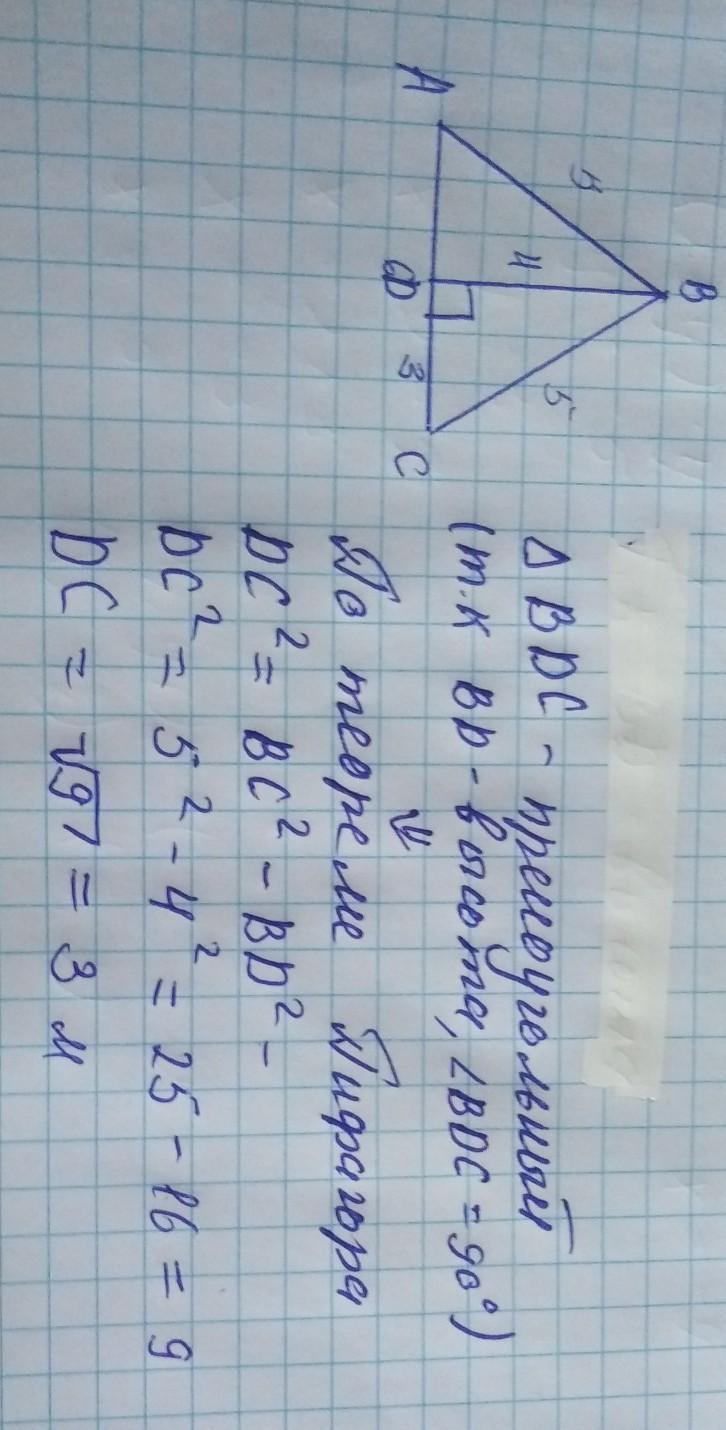 B
5
5
4
A
D
3
C
Δ BDC - прямоугольный
(т.к BD - высота, ∠BDC = 90°)
⇓
По теореме Пифагора
DC² = BC² - BD² -
DC² = 5² - 4² = 25 - 16 = 9
DC = √9 = 3 м